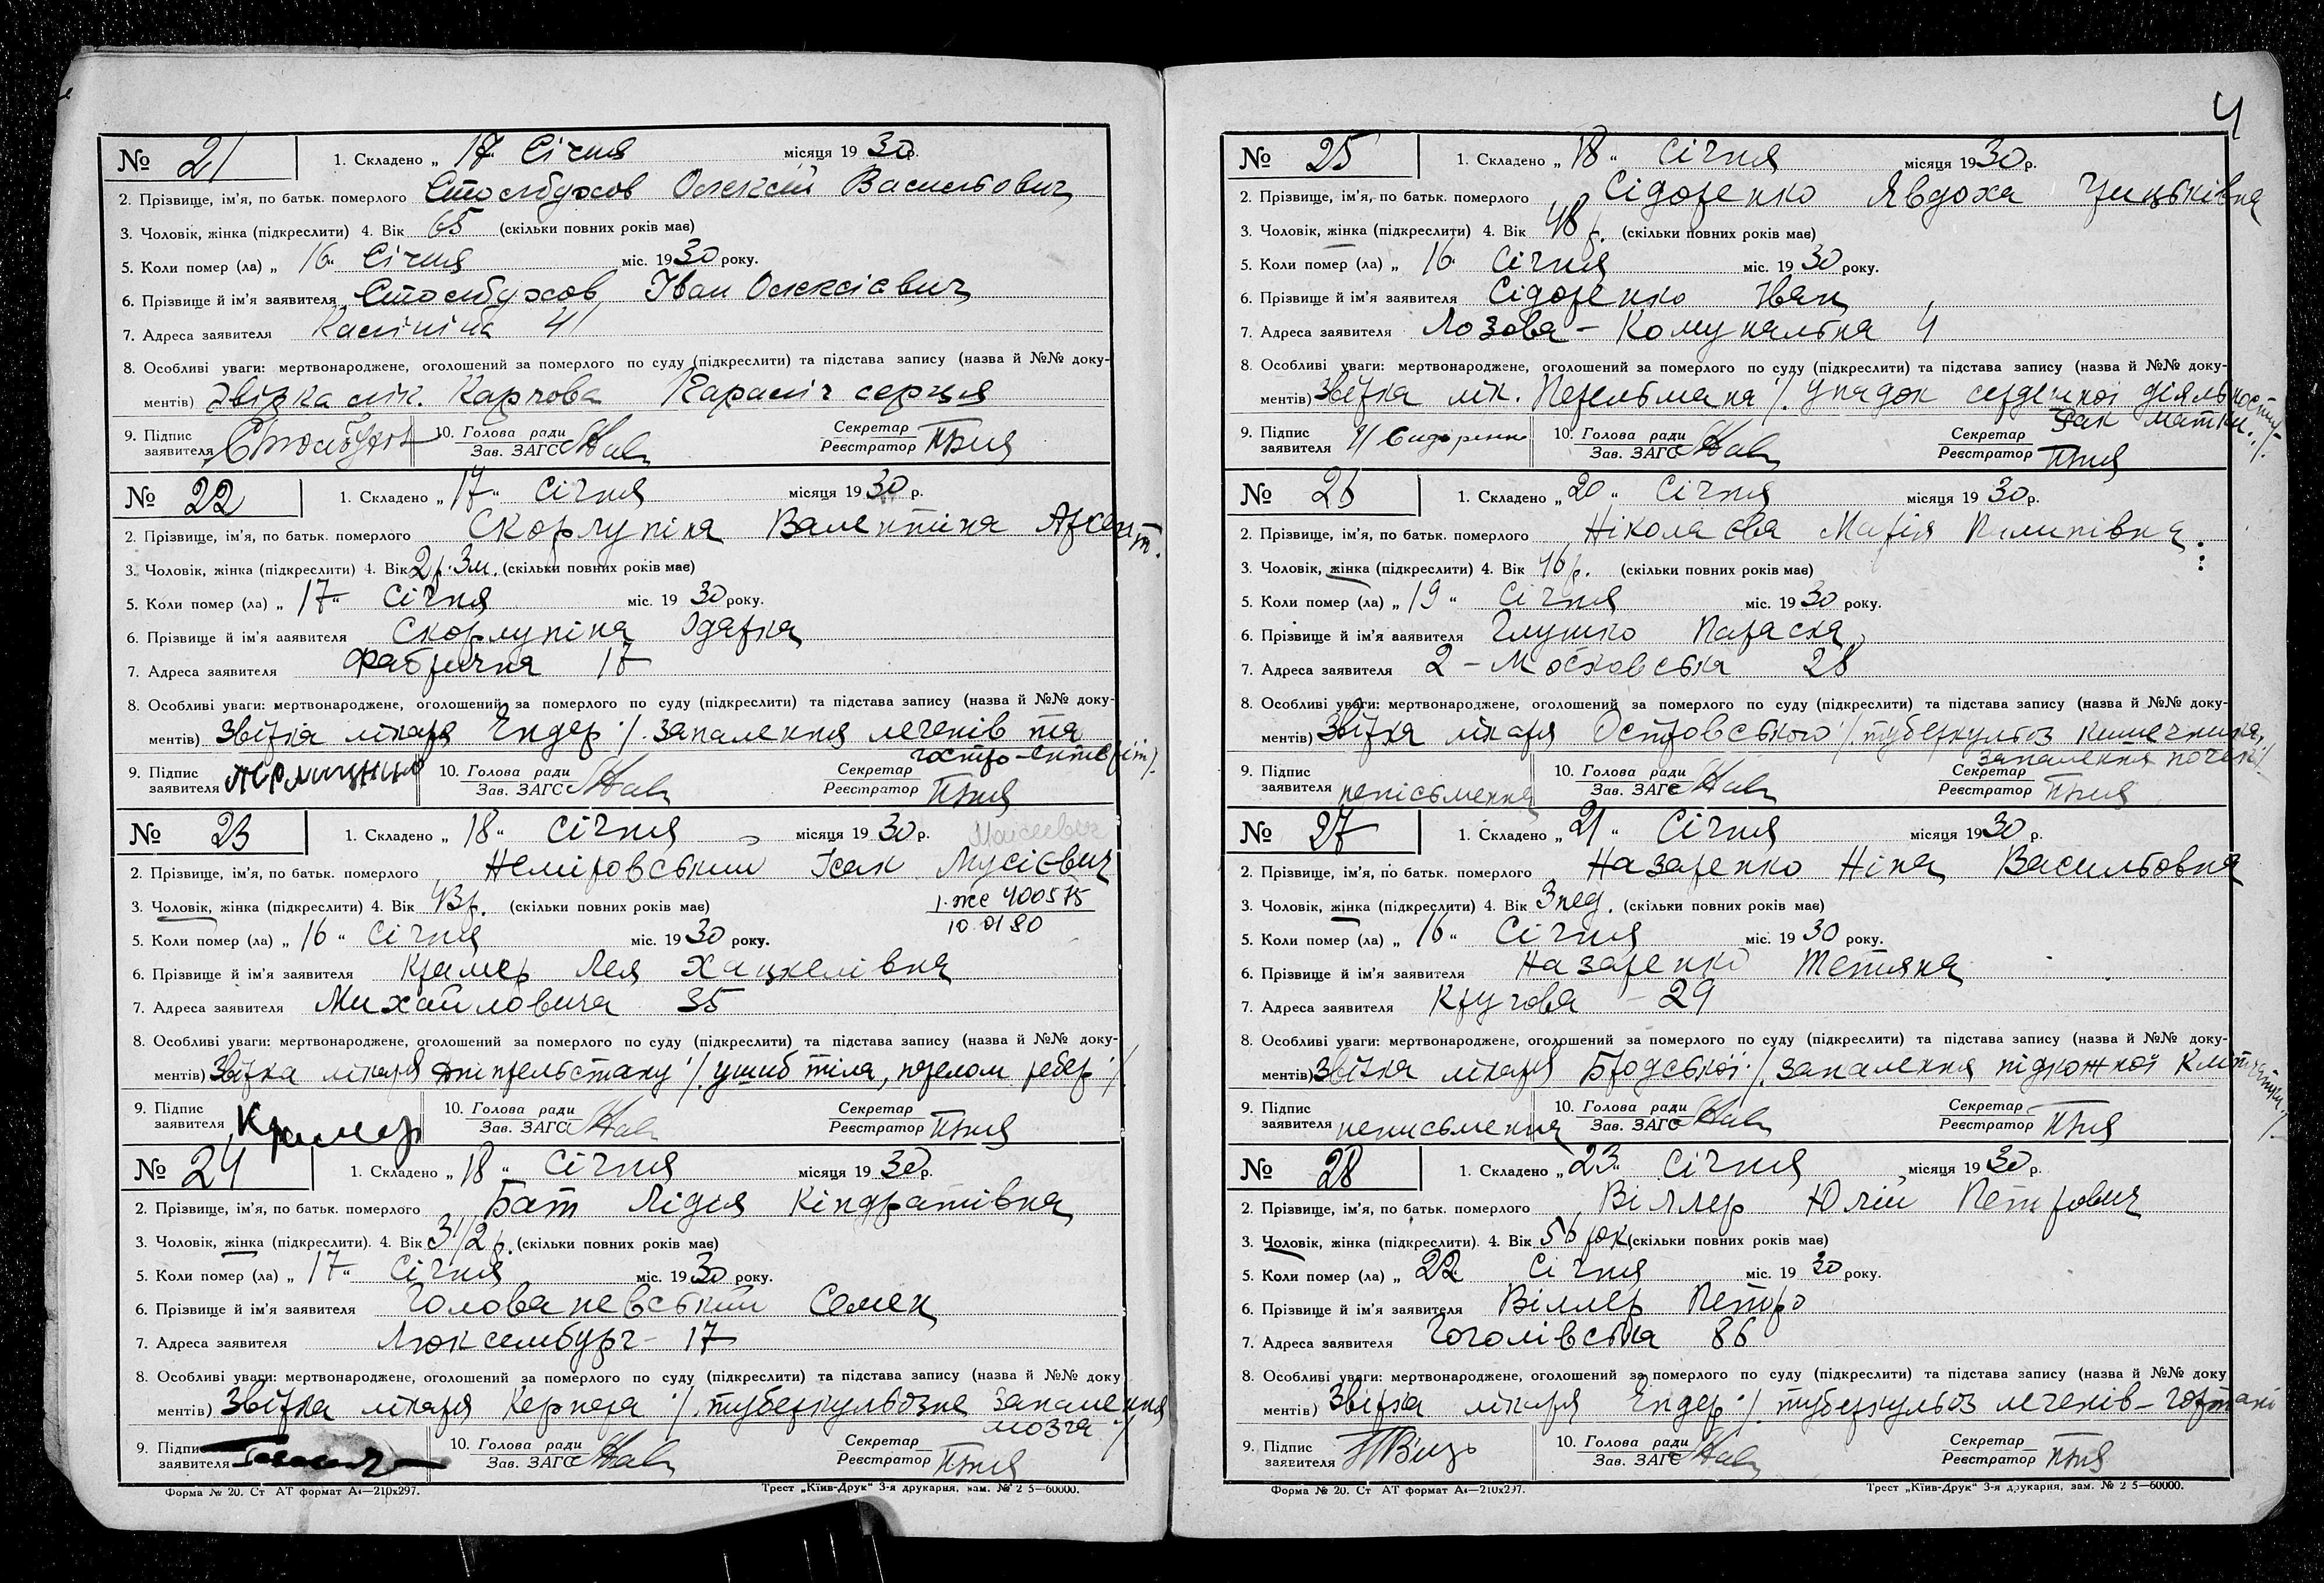 № 21 1. Складено „ 17 " Січня місяця 19 30 р.
2. Прізвище, ім'я, по батьк. померлого Столбухов Олексій Васильович
3. Чоловік, жінка (підкреслити) 4. Вік 65 (скільки повних років має)
5. Коли помер (ла) „ 16 " Січня міс. 19 30 року.
6. Прізвище й ім'я заявителя Столбухов Іван Олексієвич
7. Адреса заявителя Калініна 41
8. Особливі уваги: мертвонароджене, оголошений за померлого по суду (підкреслити) та підстава запису (назва й №№ доку-
ментів) Звідка лік. Карпова Параліч серця
9. Підпис заявителя 10. Голова ради Зав. ЗАГС Секретар Реєстратор
№ 22 1. Складено „ 17 " Січня місяця 19 30 р.
2. Прізвище, ім'я, по батьк. померлого Скорлупіна Валентіна Арсент.
3. Чоловік, жінка (підкреслити) 4. Вік 2 р. 3 м. (скільки повних років має)
5. Коли помер (ла) „ 17 " Січня міс. 19 30 року.
6. Прізвище й ім'я ааявителя Скорлупіна Одарка
7. Адреса заявителя Фабрична 17
8. Особливі уваги: мертвонароджене, оголошений за померлого по суду (підкреслити) та підстава запису (назва й №№ доку-
ментів) Звідка лікаря Ендер /. запалення легенів та
гостро-ентеріт/.
9. Підпис заявителя 10. Голова ради Зав. ЗАГС Секретар Реєстратор
№ 23 1. Складено „ 18 " Січня місяця 19 30 р.
2. Прізвище, ім'я, по батьк. померлого Неміровський Ісак Мусієвич
3. Чоловік, жінка (підкреслити) 4. Вік 43 р. (скільки повних років має) І-ЖС 400575
10.01 80
5. Коли помер (ла) „ 16 " Січня міс. 19 30 року.
6. Прізвище й ім'я заявителя Крамер Лея Хацкелівна
7. Адреса заявителя Михайловича 35
8. Особливі уваги: мертвонароджене, оголошений за померлого по суду (підкреслити) та підстава запису (назва й №№ доку-
ментів) Звідка лікаря Дніпрельстану /. ушиб тіла, перелом ребер /.
9. Підпис заявителя Крамер 10. Голова ради Зав. ЗАГС Секретар Реєстратор
№ 24 1. Складено „ 18 " Січня місяця 19 30 р.
2. Прізвище, ім'я, по батьк. померлого Бат Лідія Кіндратівна
3. Чоловік, жінка (підкреслити). 4. Вік 3 1/2 р. (скільки повних років має)
5. Коли помер (ла) „ 17 " Січня міс. 19 30 року.
6. Прізвище й ім'я заявителя Голованевський Семен
7. Адреса заявителя Люксембург- 17
8. Особливі уваги: мертвонароджене, оголошений за померлого по суду (підкреслити) та підстава запису (назва й №№ доку
ментів) Звідка лікаря Кернера /. туберкульозне запалення
мозга /.
9. Підпис заявителя 10. Голова ради Зав. ЗАГС Секретар Реєстратор
Форма № 20. Ст АТ формат А4—210х297. Трест „Київ-Друк" 3-я друкарня, зам. № 2 5—60000.
4
№ 25 1. Складено „ 18 " Січня місяця 19 30 р.
2. Прізвище, ім'я, по батьк. померлого Сідоренко Явдоха Грицьківна
3. Чоловік, жінка (підкреслити) 4. Вік 48 р. (скільки повних років має)
5. Коли помер (ла) „ 16 " Січня міс. 19 30 року.
6. Прізвище й ім'я заявителя Сідоренко Іван
7. Адреса заявителя Лозова - Комунальна 4
8. Особливі уваги: мертвонароджене, оголошений за померлого по суду (підкреслити) та підстава запису (назва й №№ доку-
ментів) Звідка лік. Перельмана /. упадок сердешної діяльности-
Рак матки. /.
9. Підпис заявителя И Сидоренко 10. Голова ради Зав. ЗАГС Секретар Реєстратор
№ 26 1. Складено „ 20 " Січня місяця 19 30 р.
2. Прізвище, ім'я, по батьк. померлого Ніколаєва Марія Пилипівна
3. Чоловік, жінка (підкреслити) 4. Вік 46 р. (скільки повних років має)
5. Коли помер (ла) „ 19 " Січня міс. 19 30 року.
6. Прізвище й ім'я ааявителя Глушко Параска
7. Адреса заявителя 2 - Московська 28
8. Особливі уваги: мертвонароджене, оголошений за померлого по суду (підкреслити) та підстава запису (назва й №№ доку-
ментів) Звідка лікаря Островського /. туберкульоз кишечника,
запалення почек /.
9. Підпис заявителя непісьменна 10. Голова ради Зав. ЗАГС Секретар Реєстратор
№ 27 1. Складено „ 21 " Січня місяця 19 30 р.
2. Прізвище, ім'я, по батьк. померлого Назаренко Ніна Васильовна
3. Чоловік, жінка (підкреслити) 4. Вік 3 нед. (скільки повних років має)
5. Коли помер (ла) „ 16 " Січня міс. 19 30 року.
6. Прізвище й ім'я заявителя Назаренко Тетяна
7. Адреса заявителя Кругова - 29
8. Особливі уваги: мертвонароджене, оголошений за померлого по суду (підкреслити) та підстава запису (назва й №№ доку-
ментів) Звідка лікаря Бродської /. запалення підкожної клітчатки. /.
9. Підпис заявителя неписьменна 10. Голова ради Зав. ЗАГС Секретар Реєстратор
№ 28 1. Складено „ 23 " Січня місяця 19 30 р.
2. Прізвище, ім'я, по батьк. померлого Віллер Юлій Петрович
3. Чоловік, жінка (підкреслити). 4. Вік 56 рок (скільки повних років має)
5. Коли помер (ла) „ 22 Січня міс. 19 30 року.
6. Прізвище й ім'я заявителя Віллер Петро
7. Адреса заявителя Гоголівська 86
8. Особливі уваги: мертвонароджене, оголошений за померлого по суду (підкреслити) та підстава запису (назва й №№ доку
ментів) Звідка лікаря Ендер /. туберкульоз легенів- гортані
9. Підпис заявителя 10. Голова ради Зав. ЗАГС Секретар Реєстратор
Форма № 20. Ст АТ формат А4—210х297. Трест „Київ-Друк" 3-я друкарня, зам. № 2 5—60000.